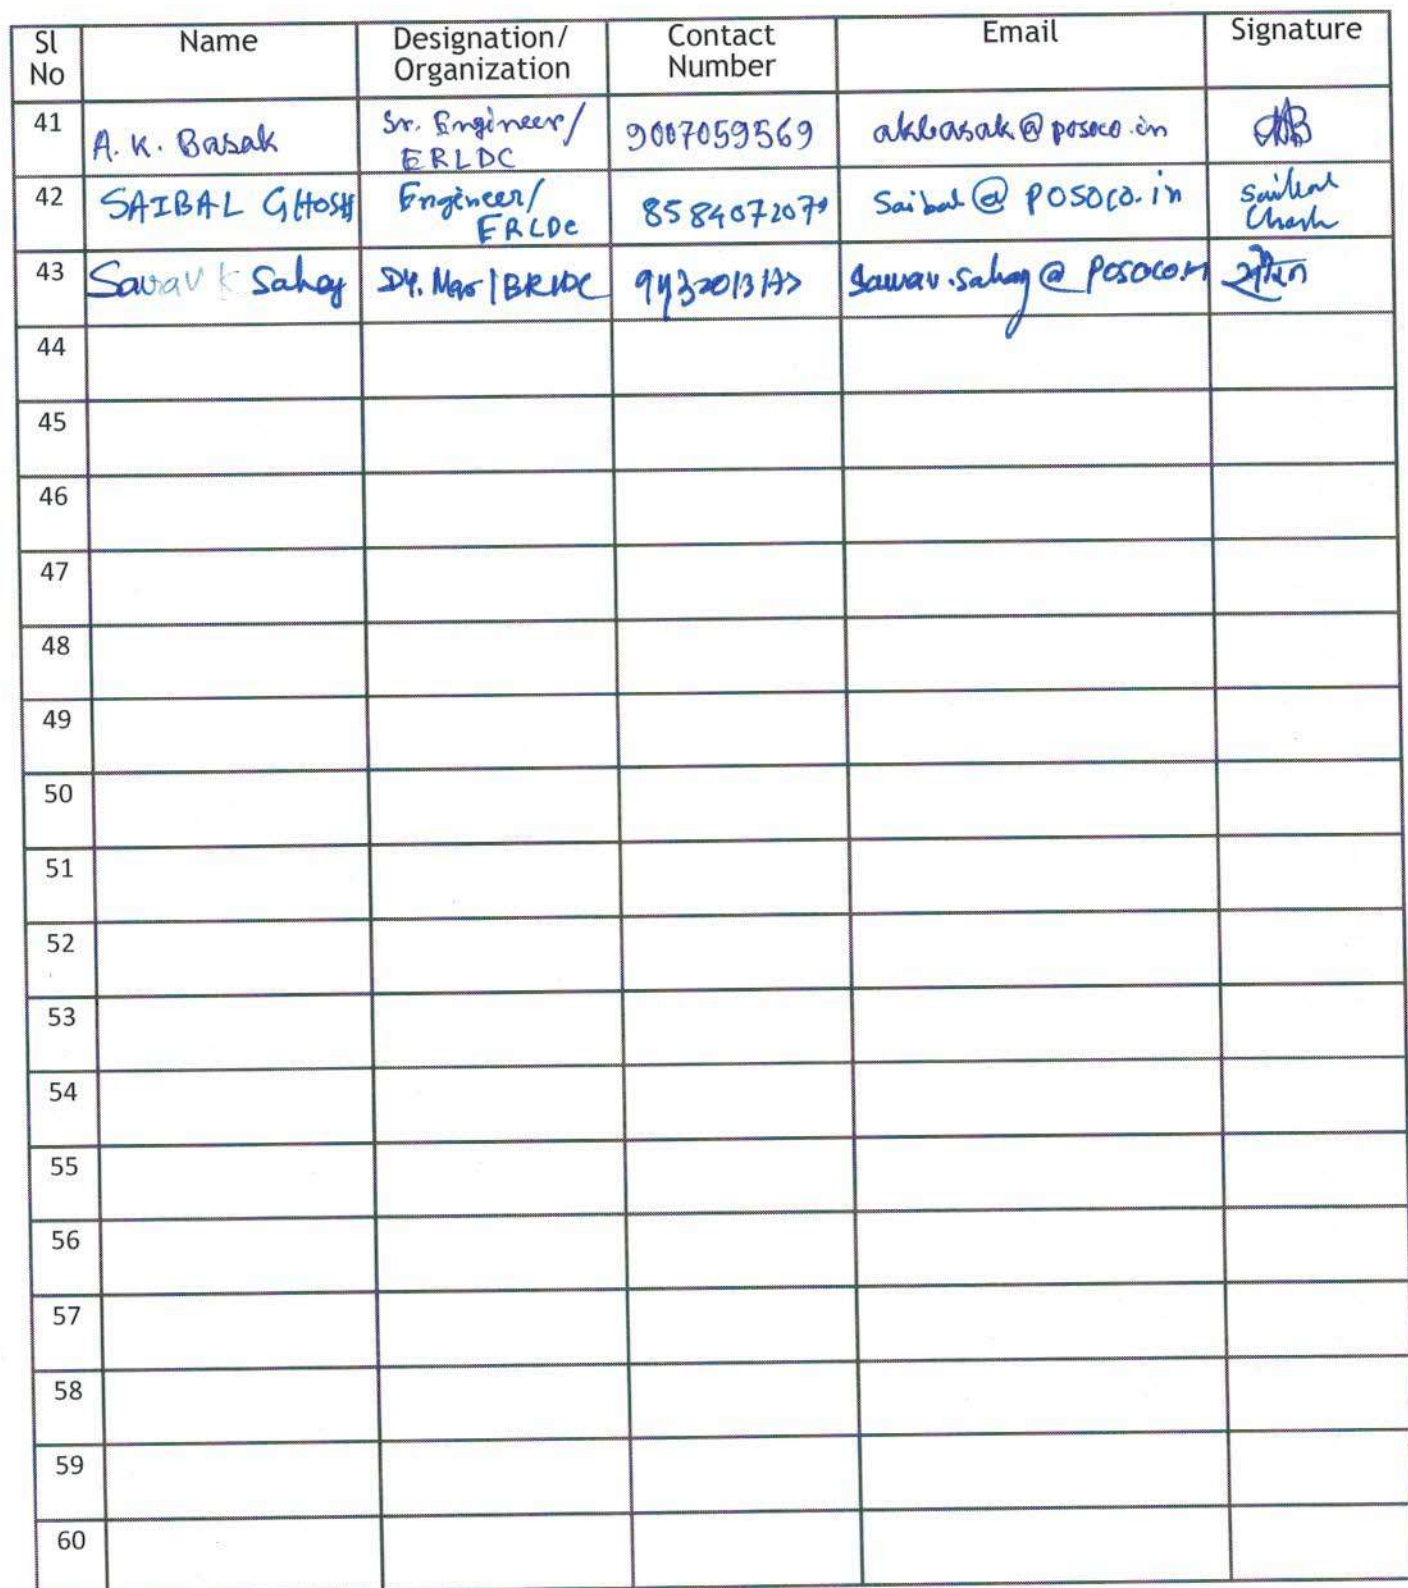 Sl No Name Designation/ Organization Contact Number Email Signature
41 A. K. Basak Sr. Engineer/ ERLDC 9007059569 akbasak@posoco.in
42 SAIBAL GHOSH Engineer/ ERLDC Saibal@posoco.in Saibal Ghosh
43 Saurav K Sahay Dy. Mgr/ERLDC Saurav.sahay@posoco.in
44
45
46
47
48
49
50
51
52
53
54
55
56
57
58
59
60